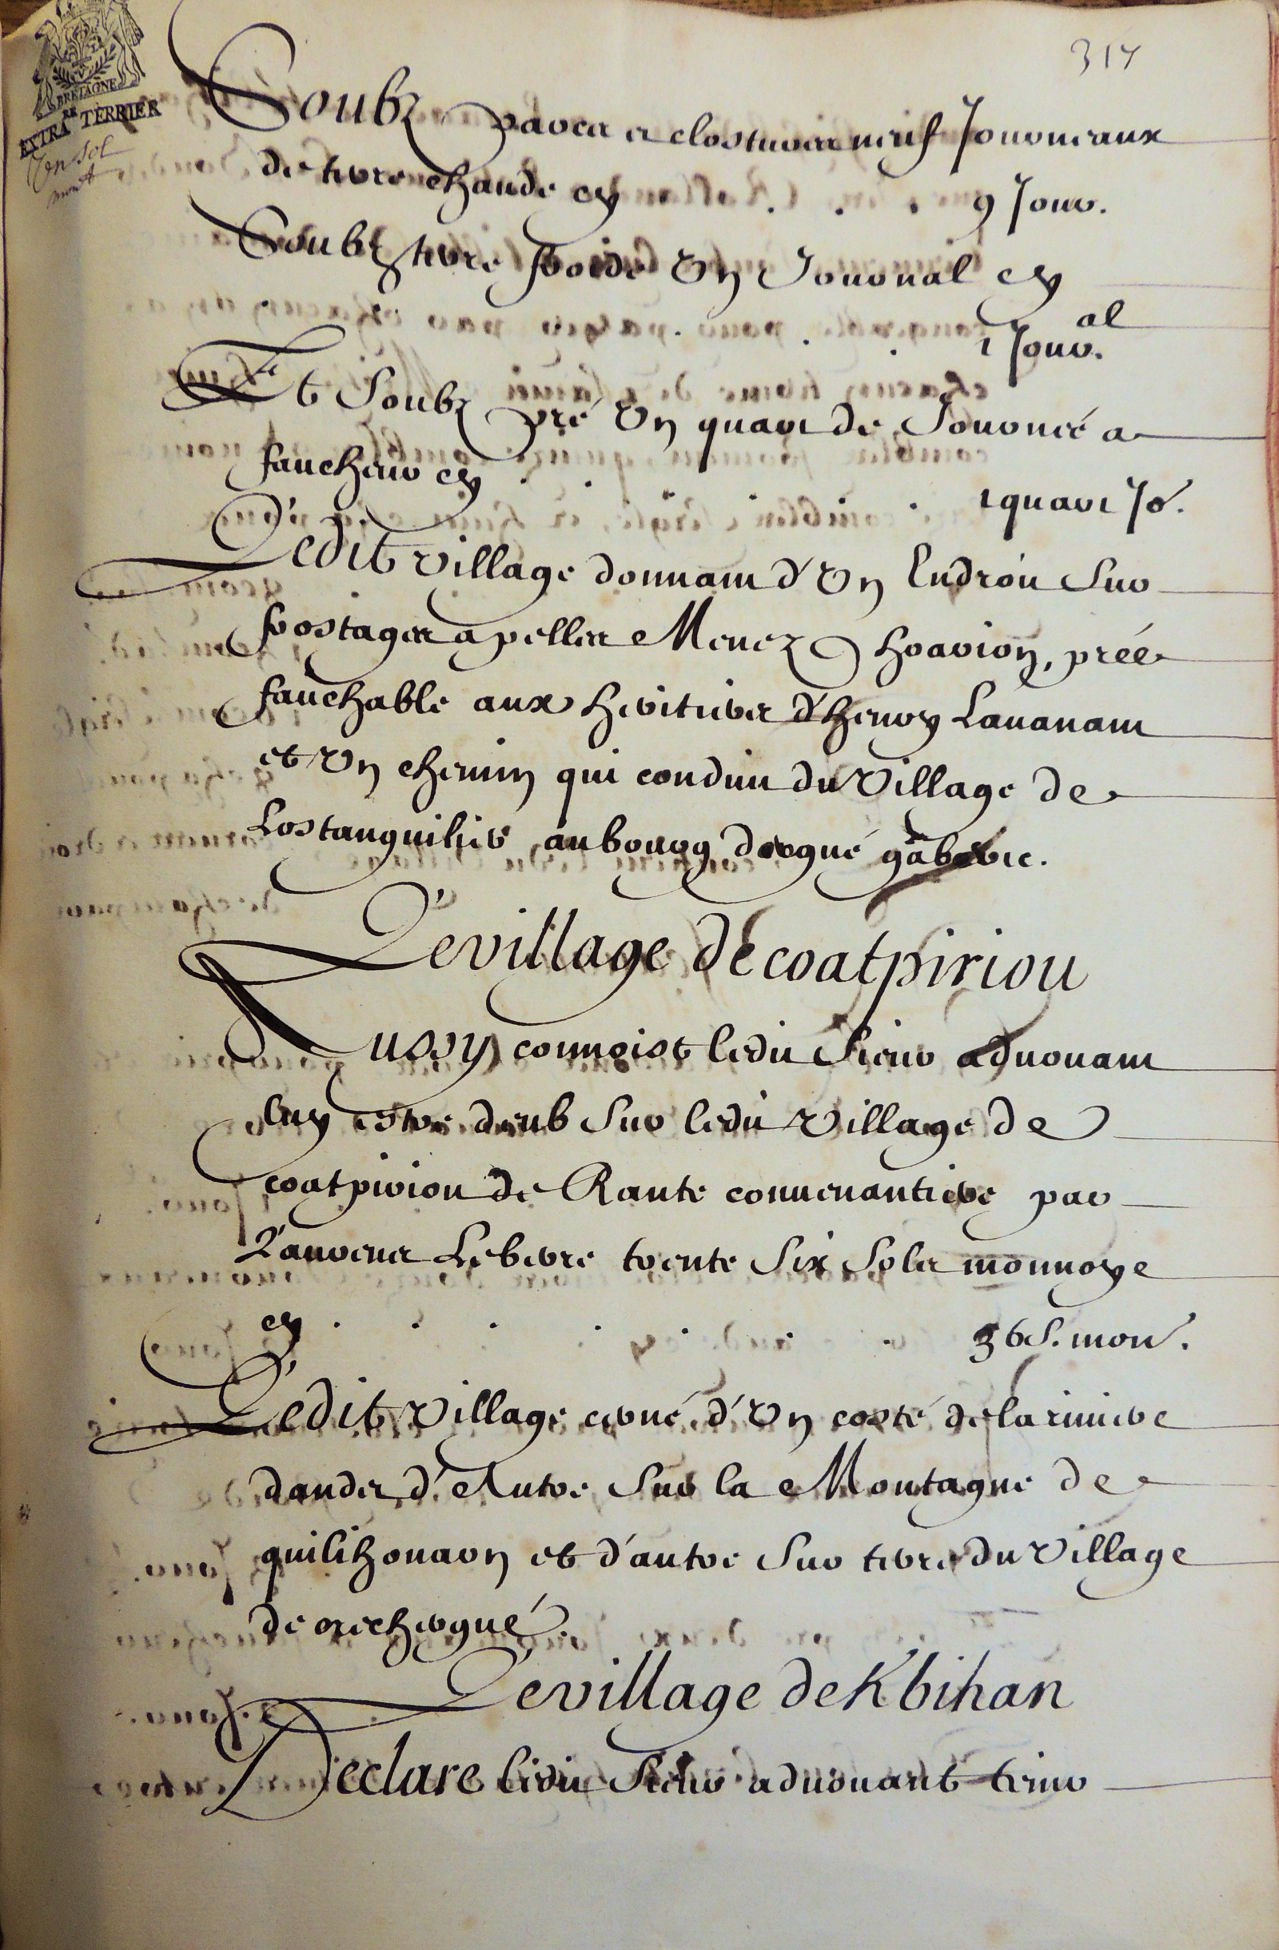 317
BRETAGNE
EXTRA.RE TERRIER
Un Sol
mon
Soubz parcs et closturs neuf Journeaux
de terre chaude cy . . . 9 Jour.
Soubz terre froide Un Journal cy
. . . 1 Jour.al
Et Soubz pré Un quart de Journée a
faucheur cy . . . 1 quart Jo.
Ledit village donnant d'Un Endroit Sur
frostages apelles Menez hoarion, prée
fauchable aux heritiers d'henry Lauanant
et Un chemin qui conduit du Village de
Lostanguilis au bourg d'ergué gaberic.
Le village de coatpiriou
Aussy connoist ledit Sieur aduouant
luy estre deub Sur ledit Village de
coatpiriou de Rante conuenantiere par
Laurens Lebere trente Six Sols monnoye
cy . . . . . . . 36 S. mon.
Ledit Village cerné d'Un costé de la riuiere
dauder d'Autre Sur la Montagne de
quilihouarn et d'autre Sur terre du Village
de crecherqué.
Le village de Kbihan
Declare ledit Sieur aduouant tenir